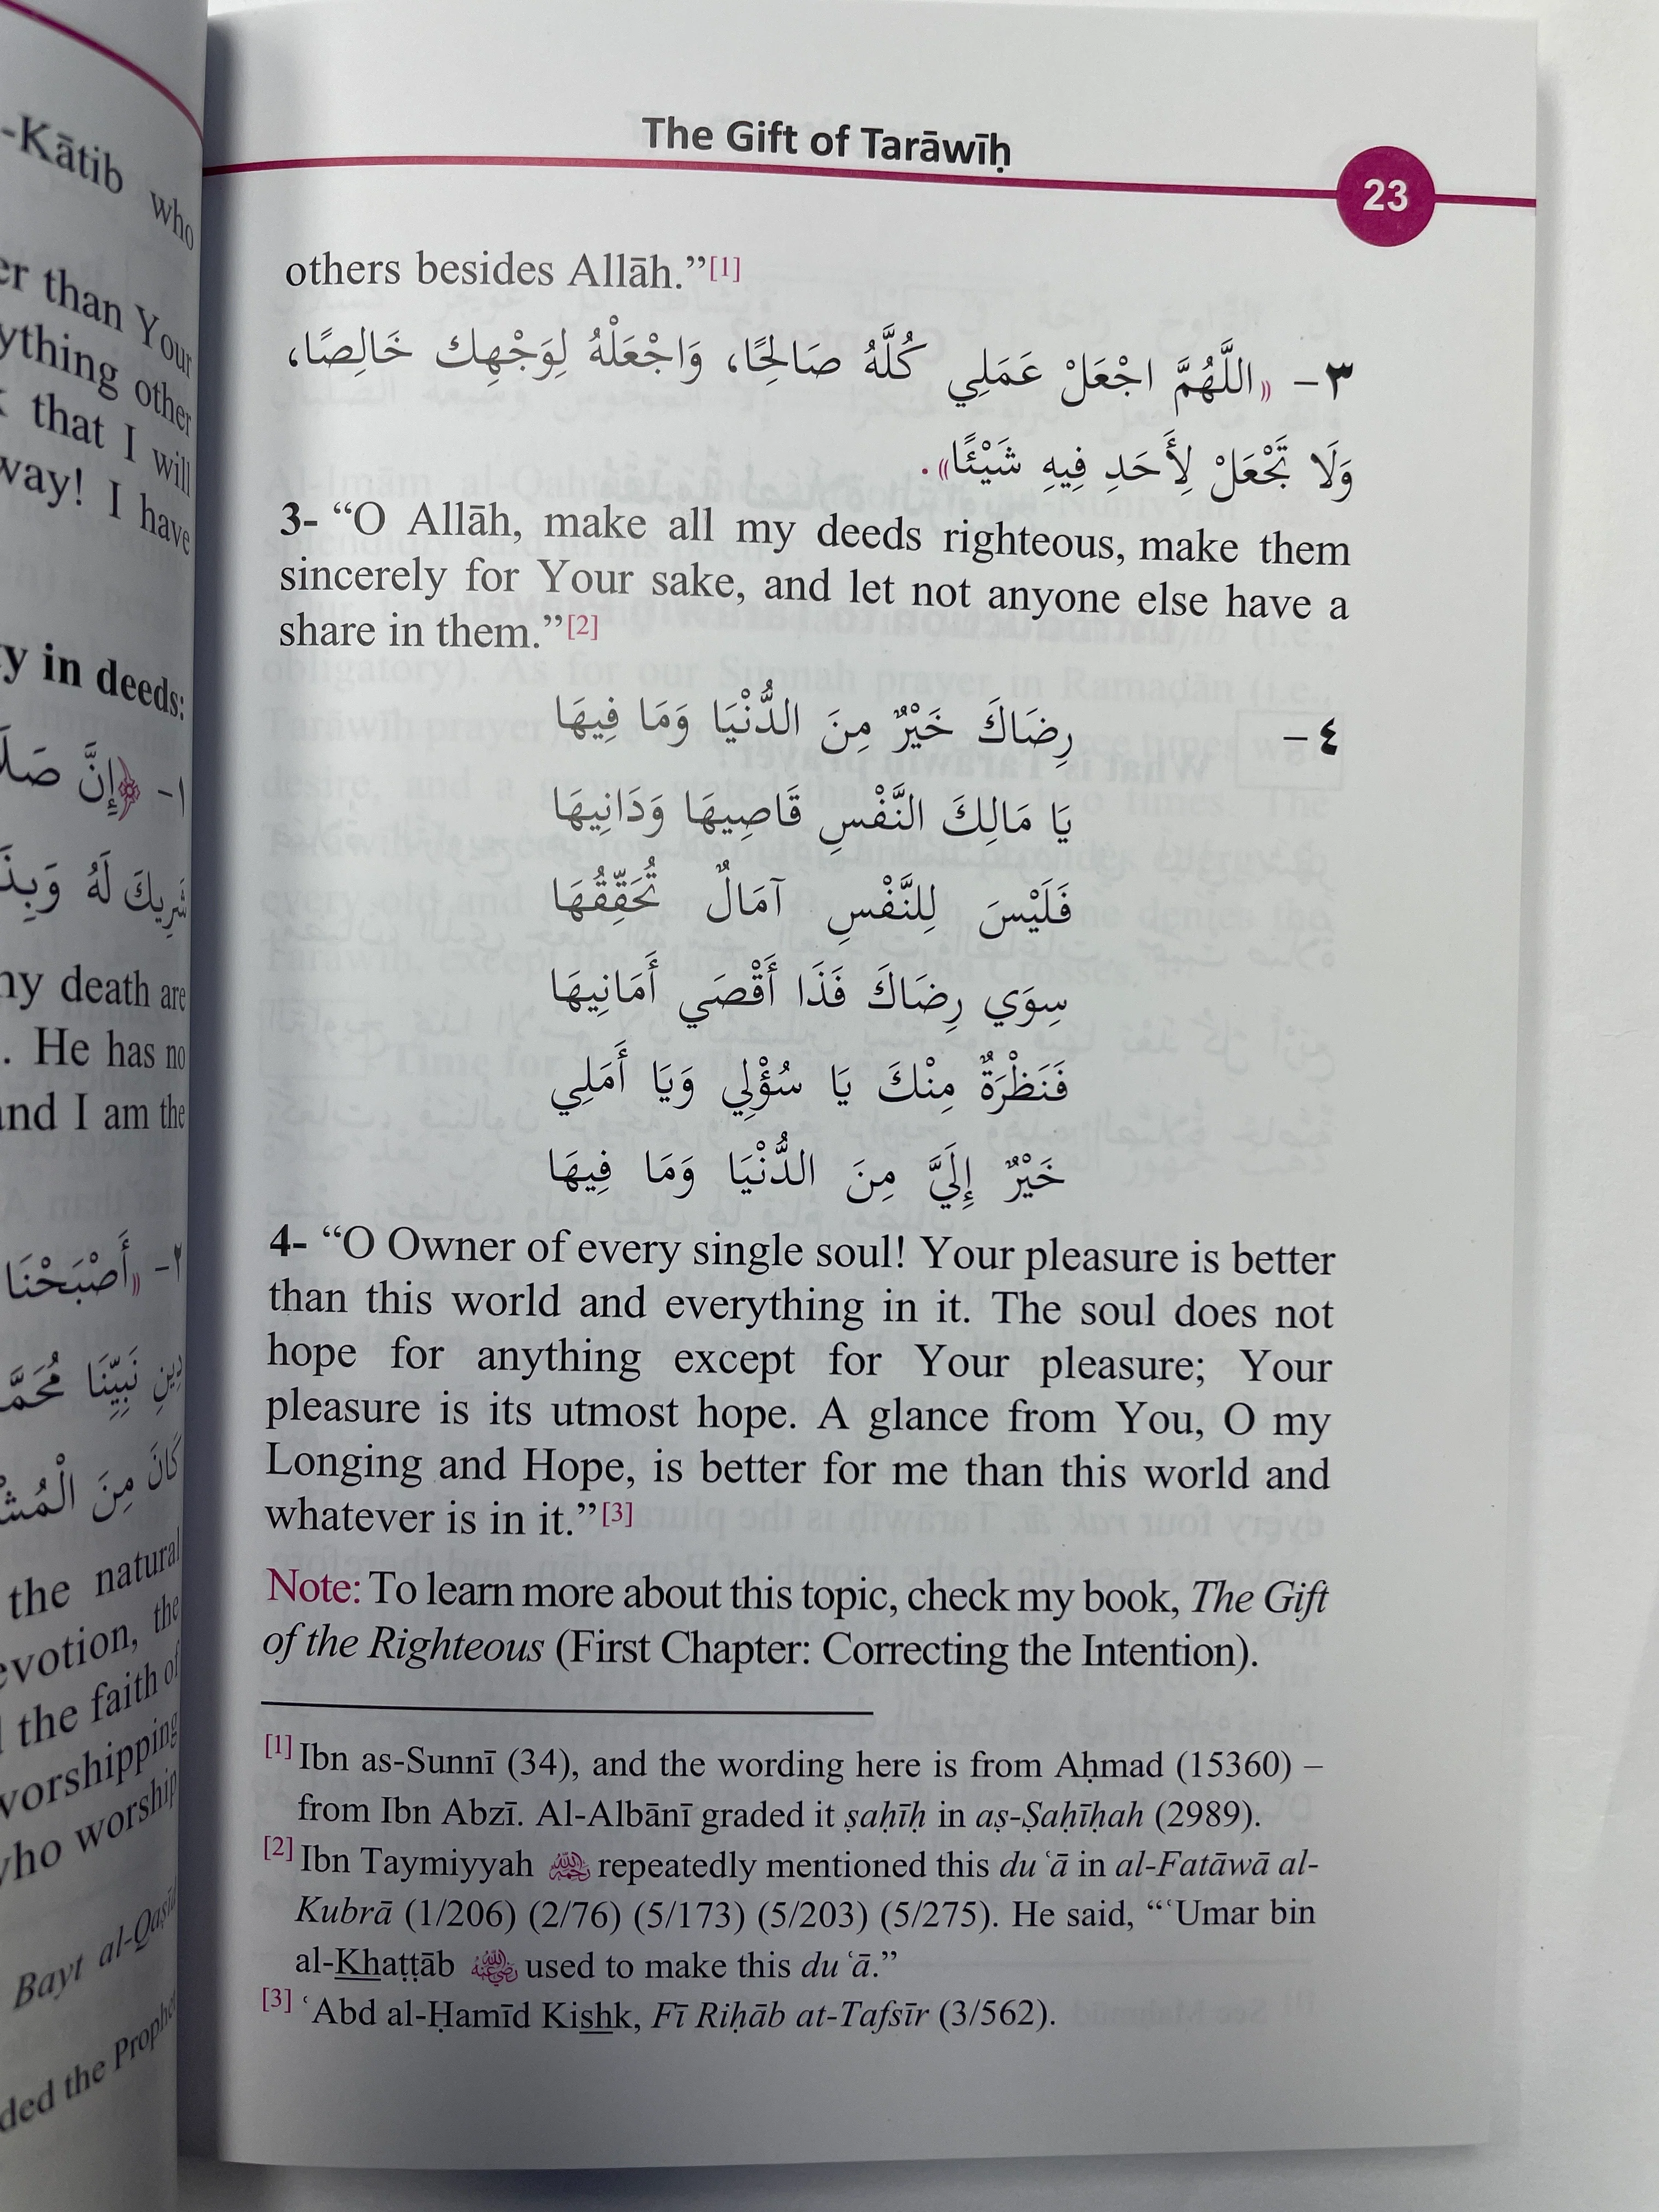 -Kātib who
er than Your
ything other
that I will
way! I have
y in deeds:
١- ﴿إِنَّ
شَرِيكَ لَهُ
my death are
. He has no
and I am the
٢- «أَصْبَحْنَا
دِينِ نَبِيِّنَا
كَانَ مِنَ
the natural
evotion, the
the faith of
worshipping
who worship
Bayt al-Qaṣīd
ded the Prophet
The Gift of Tarāwīḥ
23
others besides Allāh.”[1]
٣- «اللَّهُمَّ اجْعَلْ عَمَلِي كُلَّهُ صَالِحًا، وَاجْعَلْهُ لِوَجْهِكَ خَالِصًا،
وَلَا تَجْعَلْ لِأَحَدٍ فِيهِ شَيْئًا».
3- “O Allāh, make all my deeds righteous, make them
sincerely for Your sake, and let not anyone else have a
share in them.”[2]
٤- رِضَاكَ خَيْرٌ مِنَ الدُّنْيَا وَمَا فِيهَا
يَا مَالِكَ النَّفْسِ قَاصِيهَا وَدَانِيهَا
فَلَيْسَ لِلنَّفْسِ آمَالٌ تُحَقِّقُهَا
سِوَي رِضَاكَ فَذَا أَقْصَي أَمَانِيهَا
فَنَظْرَةٌ مِنْكَ يَا سُؤْلِي وَيَا أَمَلِي
خَيْرٌ إِلَيَّ مِنَ الدُّنْيَا وَمَا فِيهَا
4- “O Owner of every single soul! Your pleasure is better
than this world and everything in it. The soul does not
hope for anything except for Your pleasure; Your
pleasure is its utmost hope. A glance from You, O my
Longing and Hope, is better for me than this world and
whatever is in it.”[3]
Note: To learn more about this topic, check my book, The Gift
of the Righteous (First Chapter: Correcting the Intention).
[1] Ibn as-Sunnī (34), and the wording here is from Aḥmad (15360) –
from Ibn Abzī. Al-Albānī graded it ṣaḥīḥ in aṣ-Ṣaḥīḥah (2989).
[2] Ibn Taymiyyah رحمه الله repeatedly mentioned this duʿā in al-Fatāwā al-
Kubrā (1/206) (2/76) (5/173) (5/203) (5/275). He said, “ʿUmar bin
al-Khaṭṭāb رضي الله عنه used to make this duʿā.”
[3] ʿAbd al-Ḥamīd Kishk, Fī Riḥāb at-Tafsīr (3/562).